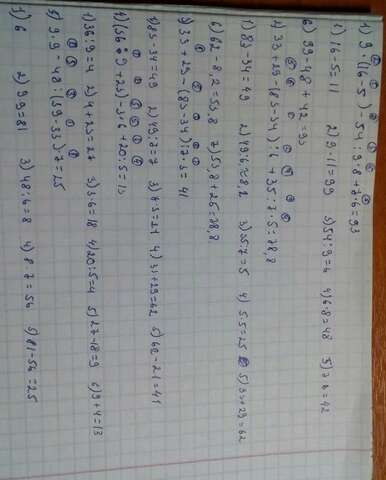 1) 9·(16-5)-54:9·8+7·6=93
1) 16-5=11 2) 9·11=99 3) 54:9=6 4) 6·8=48 5) 7·6=42
6) 99-48+42=93
2) 33+29-(83-34):6+35:7·5=78,8
1) 83-34=49 2) 49:6≈8,2 3) 35:7=5 4) 5·5=25 5) 33+29=62
6) 62-8,2=53,8 7) 53,8+25=78,8
3) 33+29-(83-34):7·3=41
1) 83-34=49 2) 49:7=7 3) 7·3=21 4) 33+29=62 5) 62-21=41
4) (36:9+23)-3·6+20:5=13
1) 36:9=4 2) 4+23=27 3) 3·6=18 4) 20:5=4 5) 27-18=9 6) 9+4=13
5) 9·9-48:(39-33)·7=25
1) 6 2) 9·9=81 3) 48:6=8 4) 8·7=56 5) 81-56=25